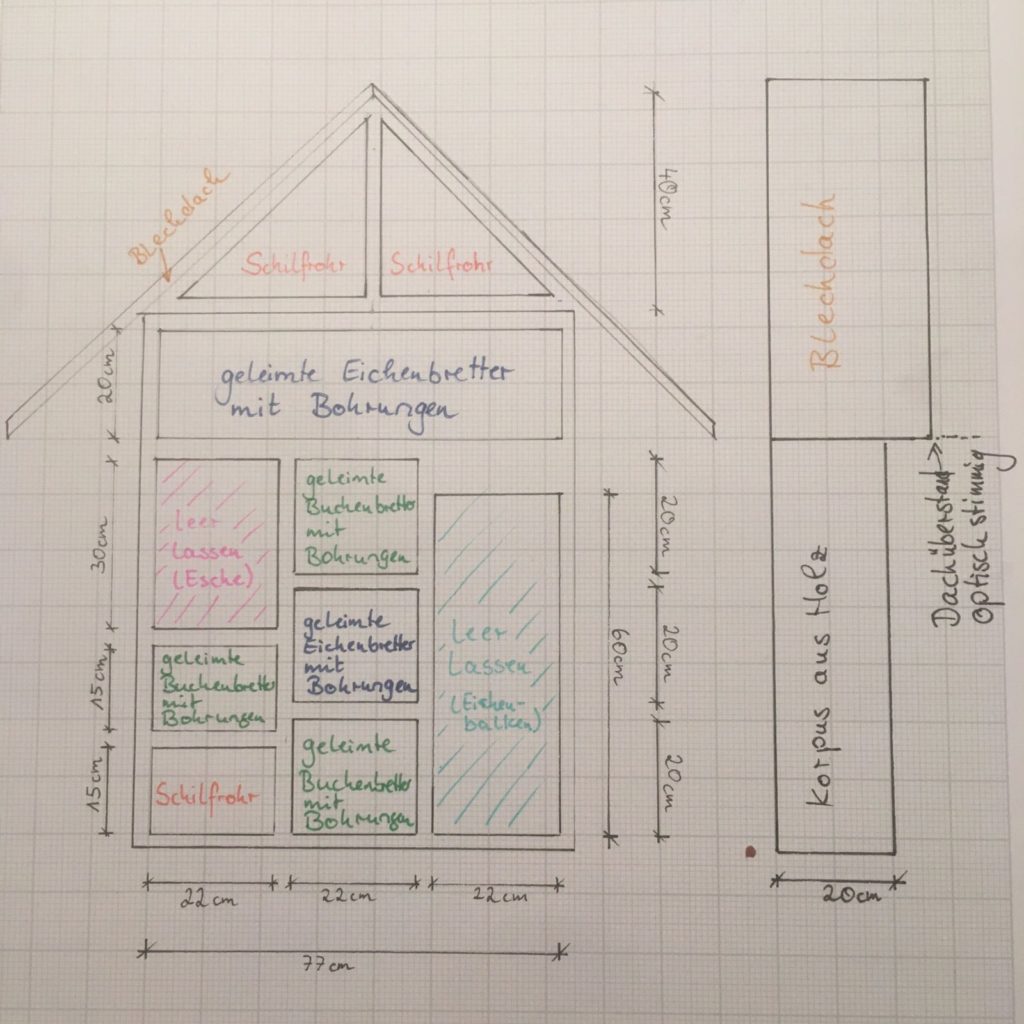 Blechdach
40cm
Schilfrohr
Schilfrohr
Blechdach
20cm
geleimte Eichenbretter
mit Bohrungen
Dachüberstand
optisch stimmig
30cm
Leer
Lassen
(Esche)
geleimte
Buchenbretter
mit
Bohrungen
20cm
60cm
Leer
Lassen
(Eichen-
balken)
geleimte
Eichenbretter
mit
Bohrungen
20cm
Korpus aus Holz
15cm
geleimte
Buchenbretter
mit
Bohrungen
15cm
Schilfrohr
geleimte
Buchenbretter
mit
Bohrungen
20cm
22cm
22cm
22cm
20cm
77cm